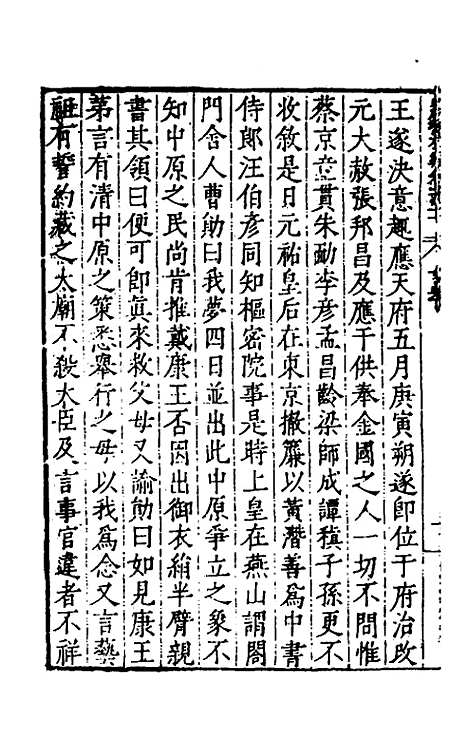 王遂決意趣應天府五月庚寅朔遂即位于府治改
元大赦張邦昌及應干供奉金國之人一切不問惟
蔡京童貫朱勔李彥孟昌齡梁師成譚稹子孫更不
收敘是日元祐皇后在東京撤簾以黃潛善爲中書
侍郎汪伯彥同知樞密院事是時上皇在燕山謂閤
門舍人曹勛曰我夢四日並出此中原爭立之象不
知中原之民尚肯推戴康王否因出御衣絹半臂親
書其領曰便可即眞來救父母又諭勛曰如見康王
第言有清中原之策悉舉行之毋以我爲念又言藝
祖有誓約藏之太廟不殺大臣及言事官違者不祥